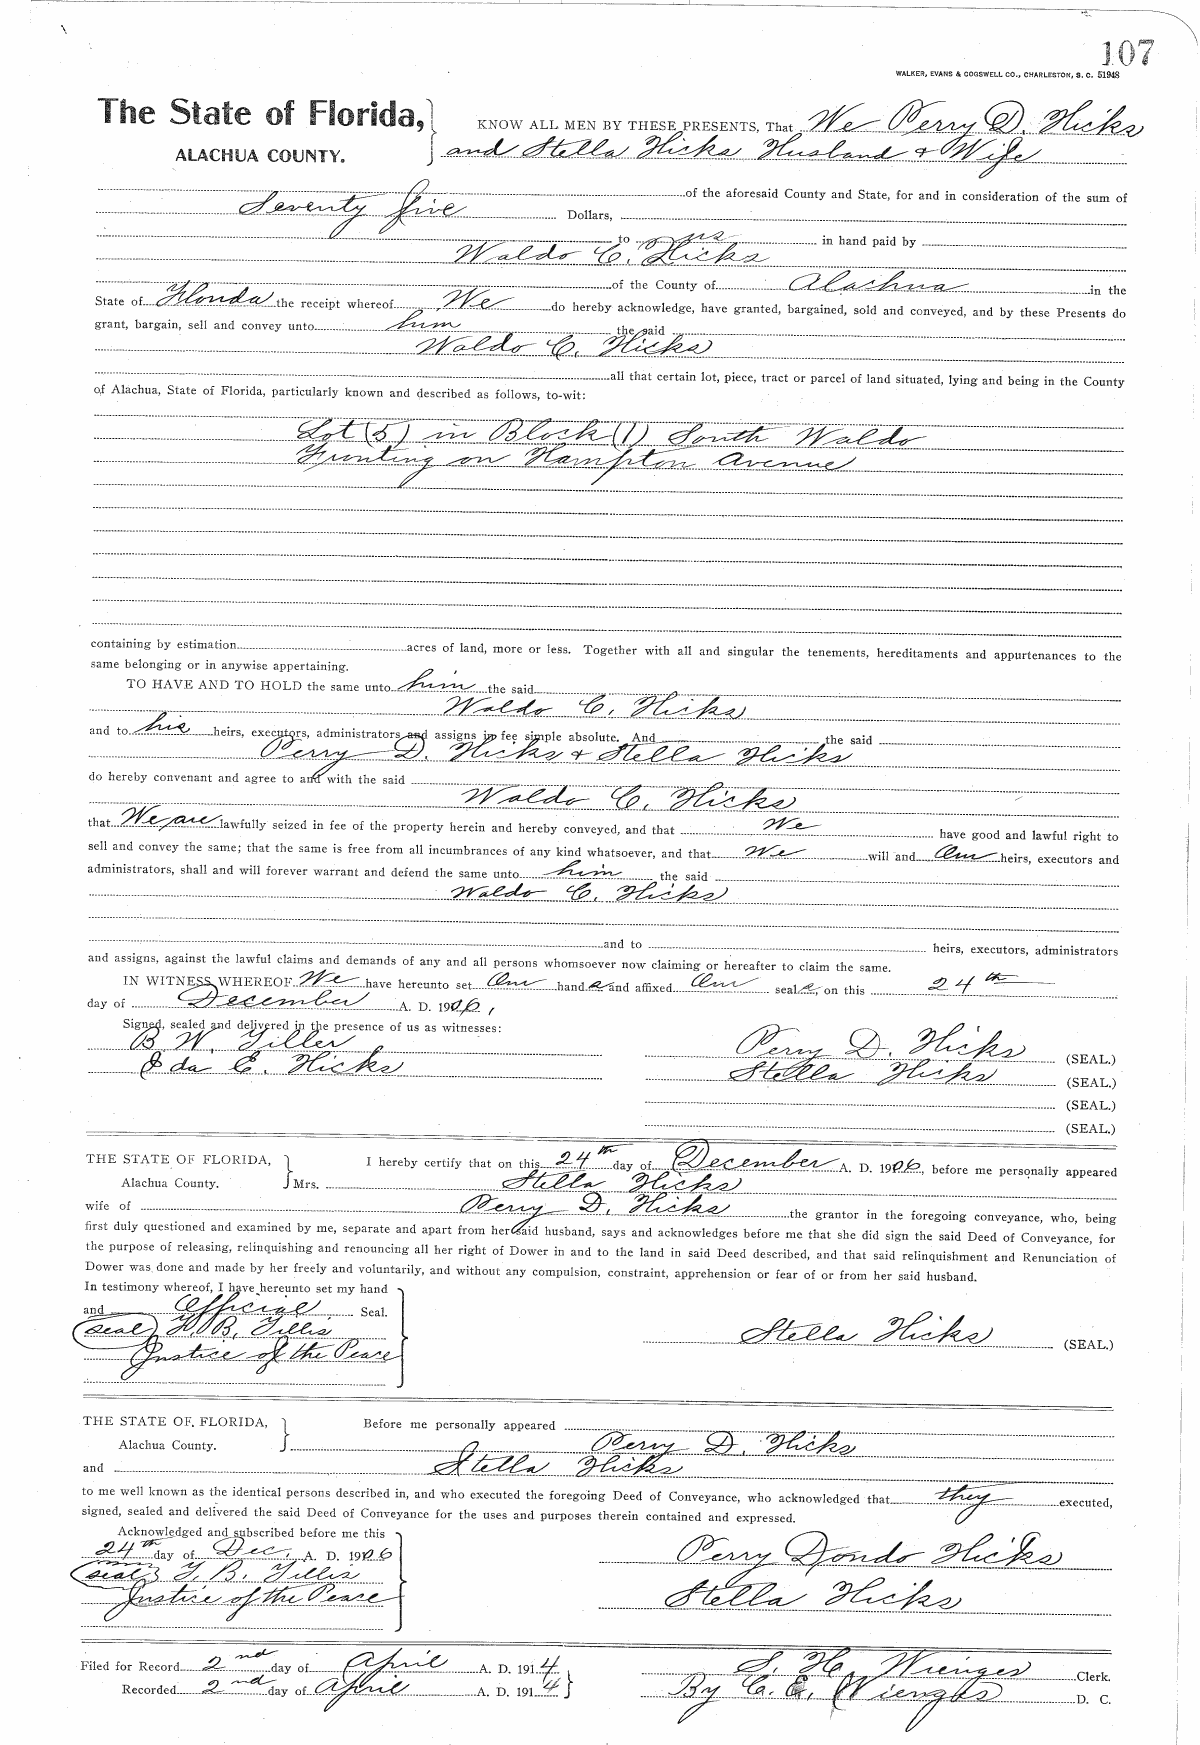 107
WALKER, EVANS & COGSWELL CO., CHARLESTON, S. C. 51948
The State of Florida,
ALACHUA COUNTY.
KNOW ALL MEN BY THESE PRESENTS, That We Perry D. Hicks
and Stella Hicks Husband & Wife
of the aforesaid County and State, for and in consideration of the sum of
Seventy five Dollars,
to us in hand paid by
Waldo C. Hicks
of the County of Alachua in the
State of Florida the receipt whereof We do hereby acknowledge, have granted, bargained, sold and conveyed, and by these Presents do
grant, bargain, sell and convey unto him the said
Waldo C. Hicks
all that certain lot, piece, tract or parcel of land situated, lying and being in the County
of Alachua, State of Florida, particularly known and described as follows, to-wit:
Lot (5) in Block (1) South Waldo
Fronting on Hampton Avenue
containing by estimation acres of land, more or less. Together with all and singular the tenements, hereditaments and appurtenances to the
same belonging or in anywise appertaining.
TO HAVE AND TO HOLD the same unto him the said
Waldo C. Hicks
and to his heirs, executors, administrators and assigns in fee simple absolute. And the said
Perry D. Hicks & Stella Hicks
do hereby convenant and agree to and with the said
Waldo C. Hicks
that We are lawfully seized in fee of the property herein and hereby conveyed, and that We have good and lawful right to
sell and convey the same; that the same is free from all incumbrances of any kind whatsoever, and that We will and Our heirs, executors and
administrators, shall and will forever warrant and defend the same unto him the said
Waldo C. Hicks
and to heirs, executors, administrators
and assigns, against the lawful claims and demands of any and all persons whomsoever now claiming or hereafter to claim the same.
IN WITNESS WHEREOF We have hereunto set Our hands and affixed Our seals, on this 24th
day of December A. D. 1906,
Signed, sealed and delivered in the presence of us as witnesses:
B. W. Tiller
Ida E. Hicks
Perry D. Hicks (SEAL.)
Stella Hicks (SEAL.)
(SEAL.)
(SEAL.)
THE STATE OF FLORIDA,
Alachua County.
I hereby certify that on this 24th day of December A. D. 1906, before me personally appeared
Mrs. Stella Hicks
wife of Perry D. Hicks the grantor in the foregoing conveyance, who, being
first duly questioned and examined by me, separate and apart from her said husband, says and acknowledges before me that she did sign the said Deed of Conveyance, for
the purpose of releasing, relinquishing and renouncing all her right of Dower in and to the land in said Deed described, and that said relinquishment and Renunciation of
Dower was done and made by her freely and voluntarily, and without any compulsion, constraint, apprehension or fear of or from her said husband.
In testimony whereof, I have hereunto set my hand
and Official Seal.
(seal) B. Tillis
Justice of the Peace
Stella Hicks (SEAL.)
THE STATE OF FLORIDA,
Alachua County.
Before me personally appeared
Perry D. Hicks
and Stella Hicks
to me well known as the identical persons described in, and who executed the foregoing Deed of Conveyance, who acknowledged that they executed,
signed, sealed and delivered the said Deed of Conveyance for the uses and purposes therein contained and expressed.
Acknowledged and subscribed before me this
24th day of Dec, A. D. 1906
(seal) B. Tillis
Justice of the Peace
Perry Dondo Hicks
Stella Hicks
Filed for Record 2nd day of April A. D. 1914
Recorded 2nd day of April A. D. 1914
S. H. Wienges Clerk.
By C. E. Wienges D. C.